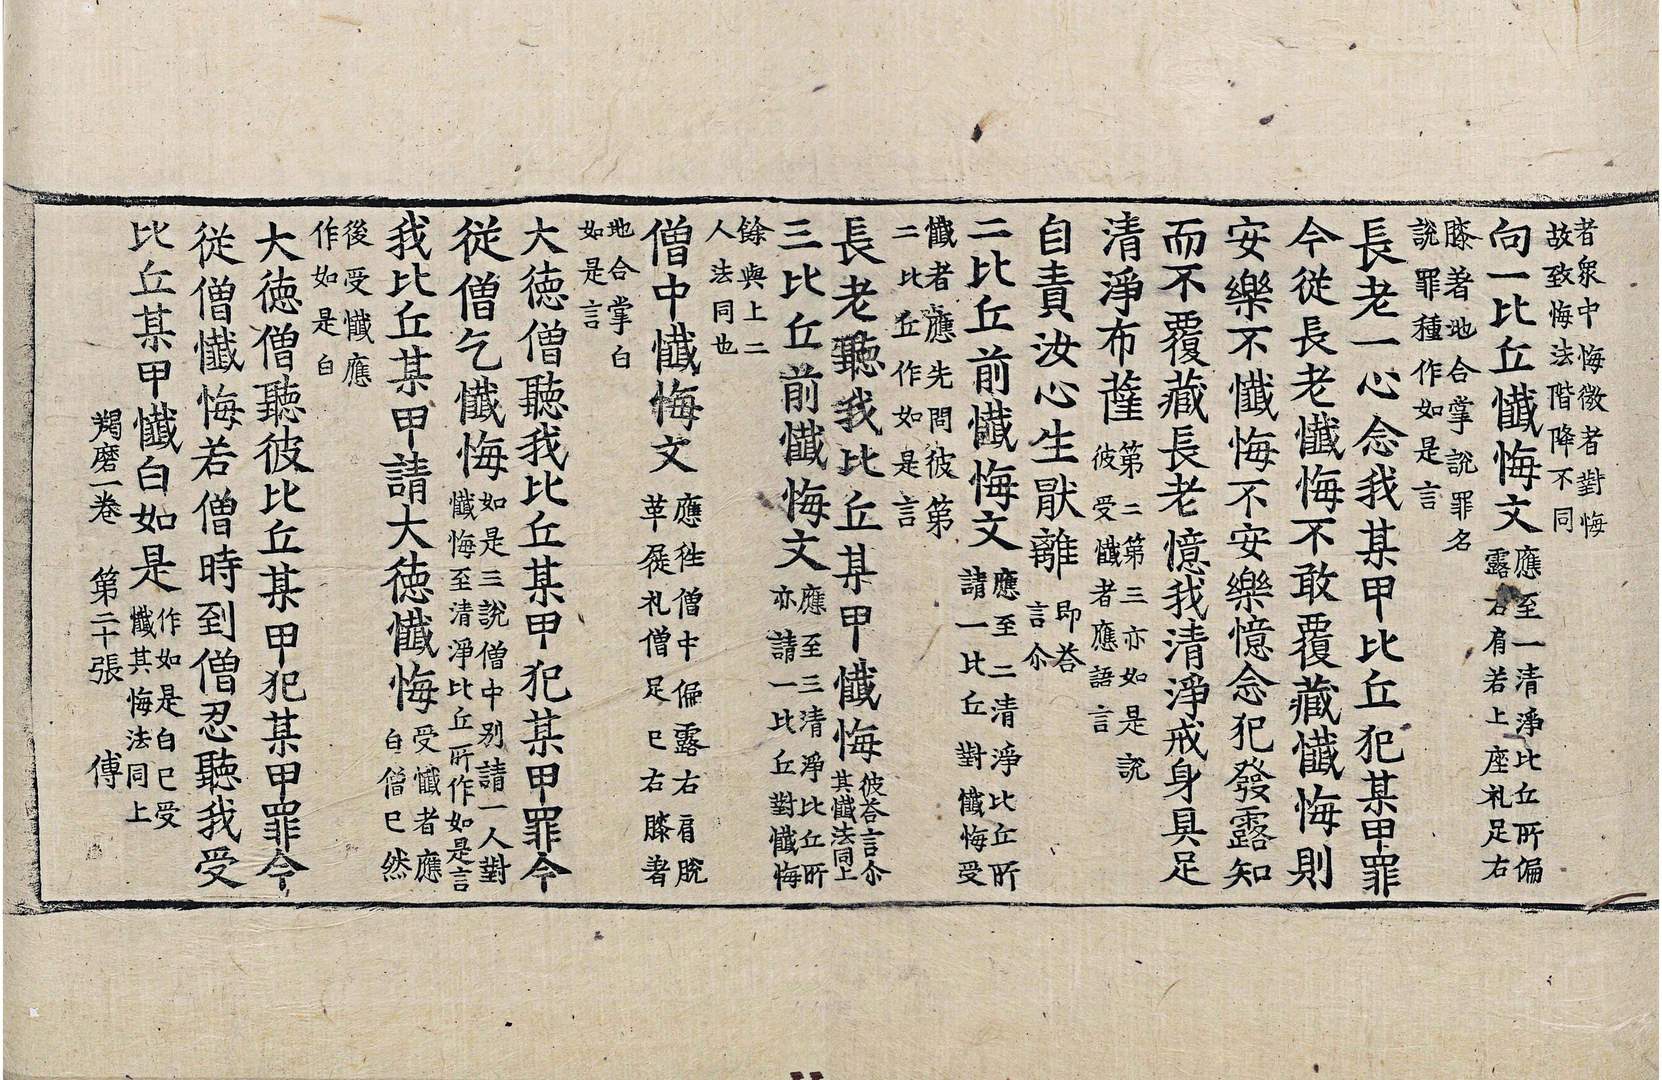 者衆中悔微者對悔
故致悔法階降不同
向一比丘懺悔文應至一清淨比丘所偏
露右肩若上座礼足右
膝著地合掌說罪名
說罪種作如是言
長老一心念我某甲比丘犯某甲罪
今從長老懺悔不敢覆藏懺悔則
安樂不懺悔不安樂憶念犯發露知
而不覆藏長老憶我清淨戒身具足
清淨布薩第二第三亦如是說
彼受懺者應語言
自責汝心生猒離即荅
言尒
二比丘前懺悔文應至二清淨比丘所
請一比丘對懺悔受
懺者應先問彼第
二比丘作如是言
長老聽我比丘某甲懺悔彼荅言尒
其懺法同上
三比丘前懺悔文應至三清淨比丘所
亦請一比丘對懺悔
餘與上二
人法同也
僧中懺悔文應徃僧中偏露右肩脫
革屣礼僧足已右膝著
地合掌白
如是言
大徳僧聽我比丘某甲犯某甲罪今
從僧乞懺悔如是三說僧中別請一人對
懺悔至清淨比丘所作如是言
我比丘某甲請大徳懺悔受懺者應
白僧已然
後受懺應
作如是白
大徳僧聽彼比丘某甲犯某甲罪今
從僧懺悔若僧時到僧忍聽我受
比丘某甲懺白如是作如是白已受
懺其悔法同上
羯磨一卷　第二十張　傅